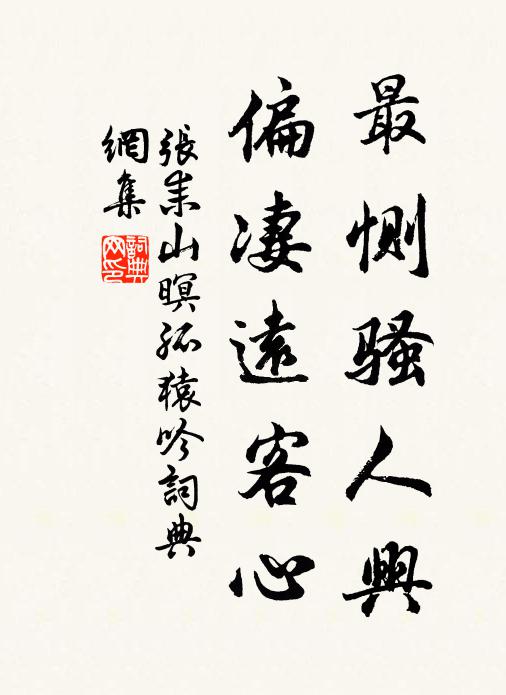 最惻騷人興
偏淒遠客心
張耒山暝孤猿吟詞典
網集
詞典
网印